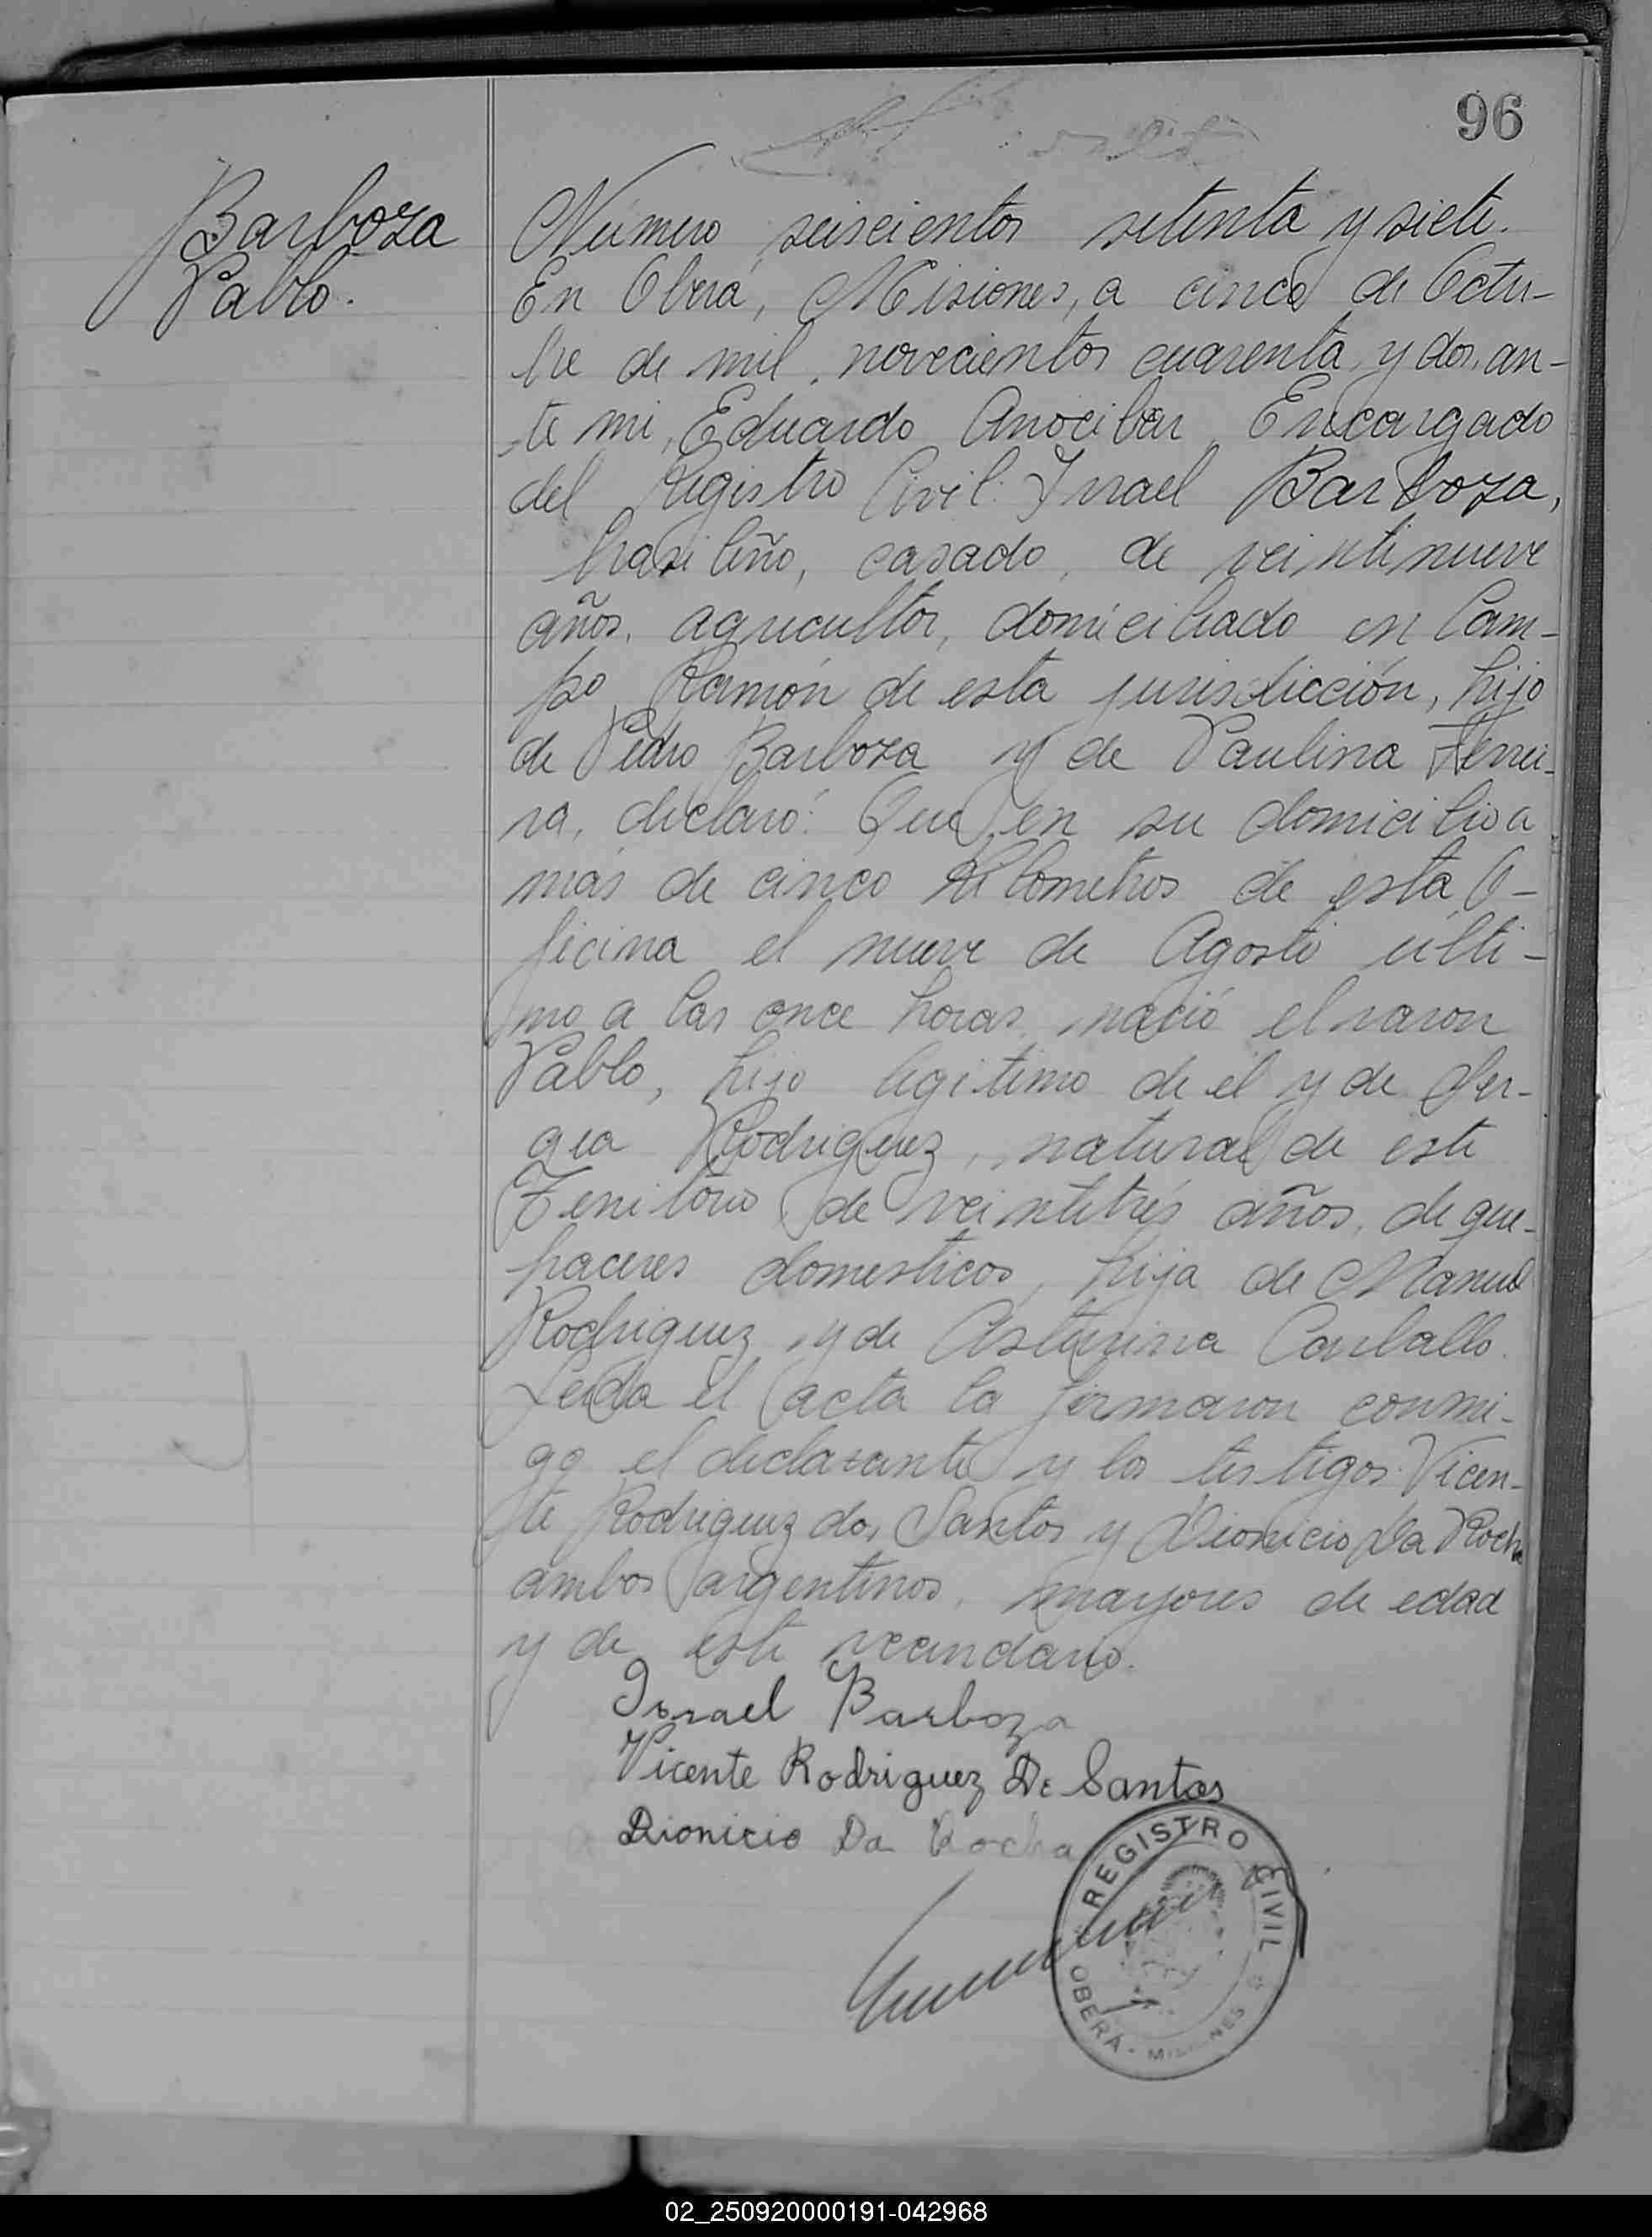 96
Barboza
Pablo.
Número seiscientos setenta y siete.
En Oberá, Misiones, a cinco de Octu-
bre de mil novecientos cuarenta y dos, an-
te mi, Eduardo Anocibar Encargado
del Registro Civil: Israel Barboza,
brasileño, casado, de veintinueve
años, agricultor, domiciliado en Cam-
po Ramón de esta jurisdicción, hijo
de Pedro Barboza y de Paulina Ferrei-
ra, declaró: Que en su domicilio a
más de cinco kilometros de esta O-
ficina el nueve de Agosto últi-
mo a las once horas, nació el varon
Pablo, hijo legitimo de el y de
Rodriguez, natural de este
Territorio de veintitrés años, de que-
haceres domesticos, hija de Manuel
Rodriguez y de Carballo.
Leida el acta la firmaron conmi-
go el declarante y los testigos Vicen-
te Rodriguez dos Santos y Dionicio Da Rocha
ambos argentinos, mayores de edad
y de este vecindario.
Israel Barboza
Vicente Rodriguez De Santos
Dionicio Da Rocha
REGISTRO CIVIL
OBERÁ - MISIONES
02_250920000191-042968